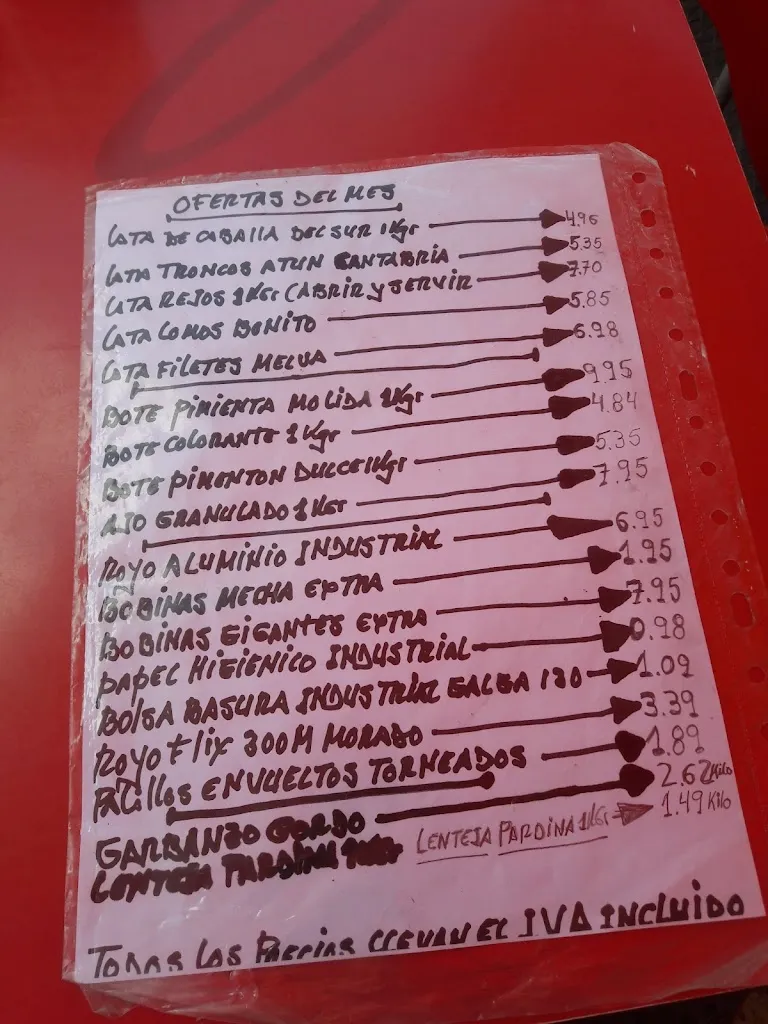 OFERTAS DEL MES
LATA DE CABALLA DEL SUR 1Kgr 4.96
LATA TRONCOS ATUN CANTABRIA 5.35
LATA REJOS 1KGr CABRIR Y SERVIR 7.70
LATA LOMOS BONITO 5.85
LATA FILETES MELVA 6.98
BOTE PIMIENTA MOLIDA 1Kgr 9.95
BOTE COLORANTE 1Kgr 4.84
BOTE PIMENTON DULCE 1Kgr 5.35
AJO GRANULADO 1KGr 7.95
ROYO ALUMINIO INDUSTRIAL 6.95
BOBINAS MECHA EXTRA 1.95
BOBINAS GIGANTES EXTRA 7.95
PAPEL HIGIENICO INDUSTRIAL 0.98
BOLSA BASURA INDUSTRIAL GALGA 130 1.09
ROYO FLIX 300M MORADO 3.39
PALILLOS ENVUELTOS TORNEADOS 1.89
GARBANZO GORDO 2.62 Kilo
LENTEJA PARDINA LENTEJA PARDINA 1KGr 1.49 Kilo
TODOS LOS PRECIOS LLEVAN EL IVA INCLUIDO